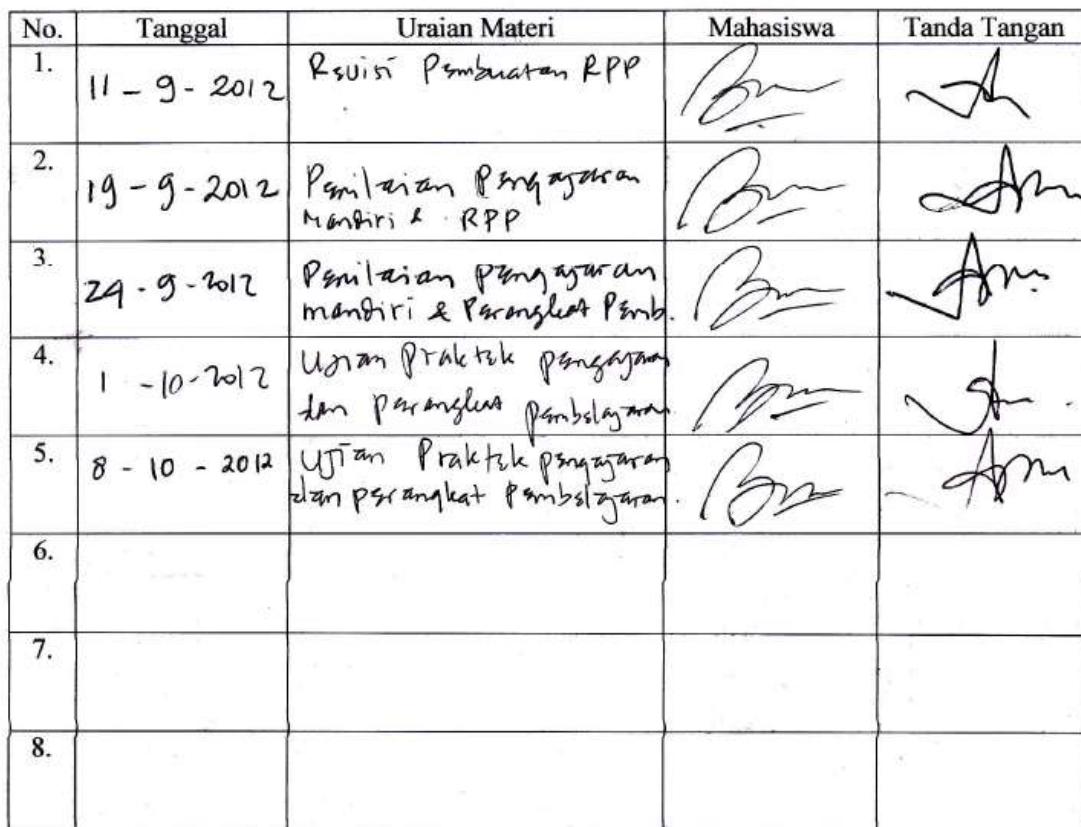 No. Tanggal Uraian Materi Mahasiswa Tanda Tangan
1. 11 - 9 - 2012 Revisi Pembuatan RPP
2. 19 - 9 - 2012 Penilaian Pengajaran
Mandiri & RPP
3. 24 - 9 - 2012 Penilaian pengajaran
mandiri & Perangkat Pemb.
4. 1 - 10 - 2012 Ujian Praktek pengajaran
dan perangkat pembelajaran
5. 8 - 10 - 2012 Ujian Praktek pengajaran
dan perangkat Pembelajaran.
6.
7.
8.